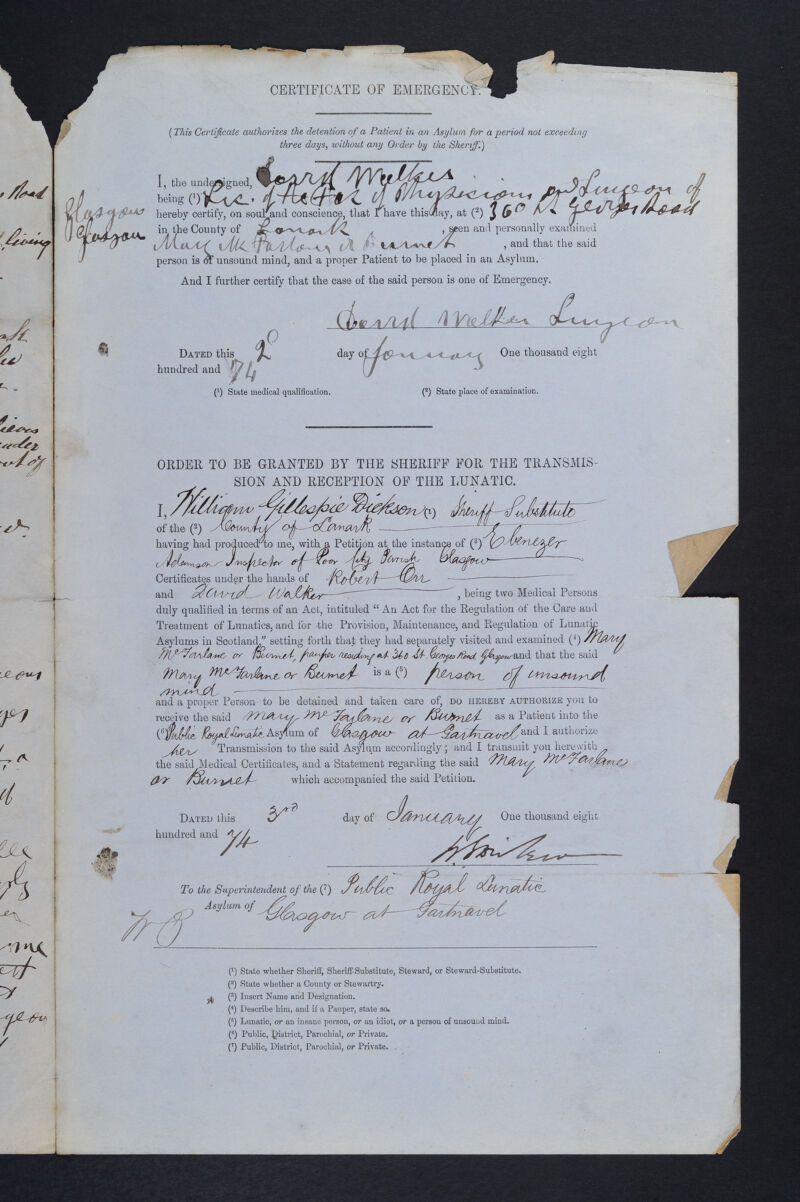 CERTIFICATE OF EMERGENCY.
(This Certificate authorizes the detention of a Patient in an Asylum for a period not exceeding
three days, without any Order by the Sheriff.)
I, the undersigned, David Walker
being (¹) Lic. of the Fac of Physicians and Surgeon of
Glasgow hereby certify, on soul and conscience, that I have this day, at (²) 360 St. Georges Road
Glasgow in the County of Lanark, seen and personally examined
Mary McFarlane or Burnet, and that the said
person is of unsound mind, and a proper Patient to be placed in an Asylum.
And I further certify that the case of the said person is one of Emergency.
David Walker Surgeon
DATED this 2d day of January One thousand eight
hundred and 74
(¹) State medical qualification. (²) State place of examination.
ORDER TO BE GRANTED BY THE SHERIFF FOR THE TRANSMIS-
SION AND RECEPTION OF THE LUNATIC.
I, William Gillespie Dickson (¹) Sheriff Substitute
of the (²) County of Lanark
having had produced to me, with a Petition at the instance of (³) Ebenezer
Adamson Inspector of Poor City Parish Glasgow
Certificates under the hands of Robert Orr
and David Walker, being two Medical Persons
duly qualified in terms of an Act, intituled "An Act for the Regulation of the Care and
Treatment of Lunatics, and for the Provision, Maintenance, and Regulation of Lunatic
Asylums in Scotland," setting forth that they had separately visited and examined (⁴) Mary
McFarlane or Burnet, pauper residing at 360 St Georges Road Glasgow and that the said
Mary McFarlane or Burnet is a (⁵) person of unsound
mind
and a proper Person to be detained and taken care of, DO HEREBY AUTHORIZE you to
receive the said Mary McFarlane or Burnet as a Patient into the
(⁶) Public Royal Lunatic Asylum of Glasgow at Gartnavel and I authorize
her Transmission to the said Asylum accordingly; and I transmit you herewith
the said Medical Certificates, and a Statement regarding the said Mary McFarlane
or Burnet which accompanied the said Petition.
DATED this 3rd day of January One thousand eight
hundred and 74
To the Superintendent of the (⁷) Public Royal Lunatic
Asylum of Glasgow at Gartnavel
(¹) State whether Sheriff, Sheriff-Substitute, Steward, or Steward-Substitute.
(²) State whether a County or Stewartry.
(³) Insert Name and Designation.
(⁴) Describe him, and if a Pauper, state so.
(⁵) Lunatic, or an insane person, or an idiot, or a person of unsound mind.
(⁶) Public, District, Parochial, or Private.
(⁷) Public, District, Parochial, or Private.
Road
living